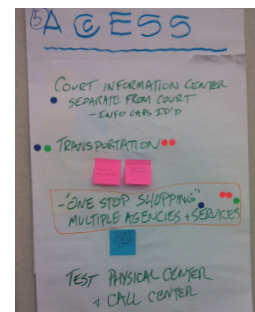 5) ACCESS
COURT INFORMATION CENTER
SEPARATE FROM COURT
- INFO GAPS ID'D
TRANSPORTATION
- "ONE STOP SHOPPING"
MULTIPLE AGENCIES + SERVICES
TEST PHYSICAL CENTER
+ CALL CENTER